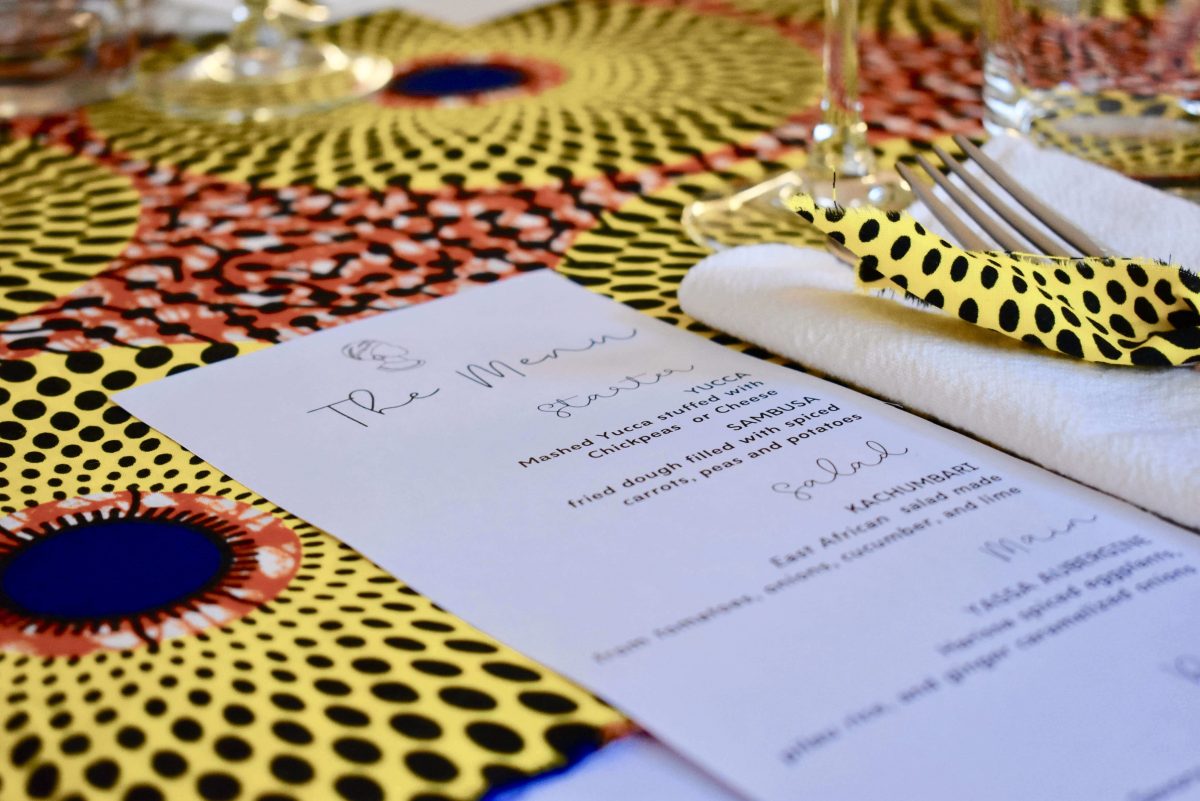 The Menu
Starter
YUCCA
Mashed Yucca stuffed with
Chickpeas or Cheese
SAMBUSA
fried dough filled with spiced
carrots, peas and potatoes
Salad
KACHUMBARI
East African salad made
from tomatoes, onions, cucumber, and lime
Main
YASSA AUBERGINE
spiced eggplant,
pilau rice, and ginger caramelized onions